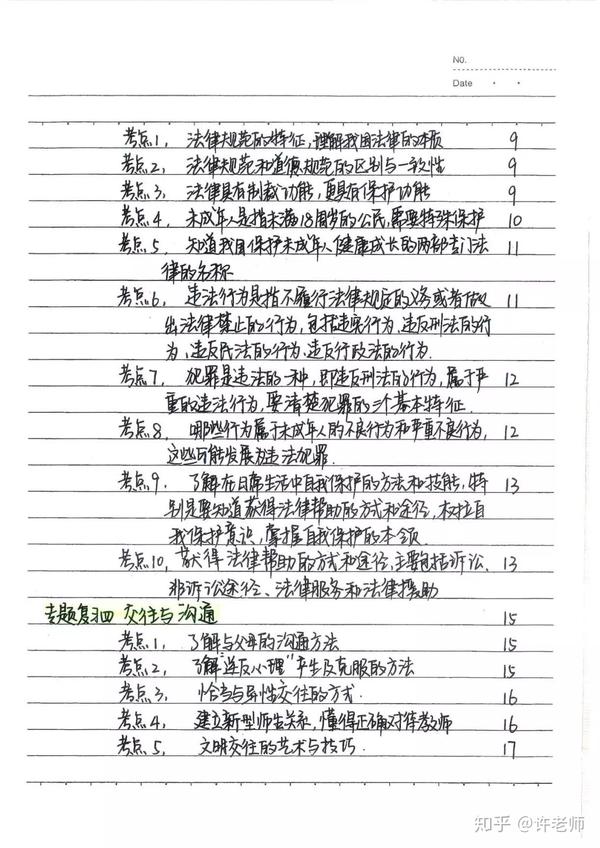 No.
Date
考点1. 法律规范的特征,理解我国法律的本质 9
考点2. 法律规范和道德规范的区别与一致性 9
考点3. 法律具有制裁功能,更具有保护功能 9
考点4. 未成年人是指未满18周岁的公民,需要特殊保护 10
考点5. 知道我国保护未成年人健康成长的两部专门法 11
律的名称
考点6. 违法行为是指不履行法律规定的义务或者做 11
出法律禁止的行为,包括违宪行为、违反刑法的行
为、违反民法的行为、违反行政法的行为.
考点7. 犯罪是违法的一种,即违反刑法的行为,属于严 12
重的违法行为,要清楚犯罪的三个基本特征.
考点8. 哪些行为属于未成年人的不良行为和严重不良行为, 12
这些可能发展为违法犯罪.
考点9. 了解在日常生活中自我保护的方法和技能,特 13
别是要知道获得法律帮助的方式和途径,树立自
我保护意识,掌握自我保护的本领.
考点10. 获得法律帮助的方式和途径,主要包括诉讼、 13
非诉讼途径、法律服务和法律援助
专题复习四 交往与沟通 15
考点1. 了解与父母的沟通方法 15
考点2. 了解“逆反心理”产生及克服的方法 15
考点3. 恰当与异性交往的方式. 16
考点4. 建立新型师生关系,懂得正确对待教师 16
考点5. 文明交往的艺术与技巧. 17
知乎 @许老师